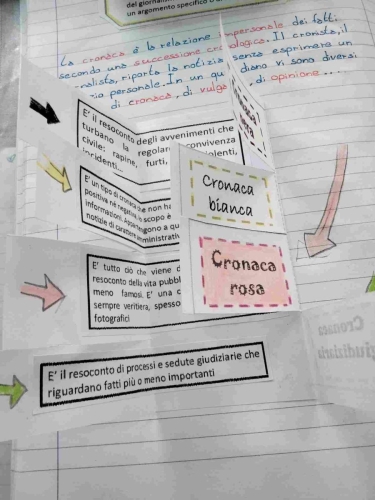 del giornalis
un argomento specifico
La cronaca è la relazione impersonale dei fatti
secondo una successione cronologica. Il cronista, il
nalista, riporta la notizia senza esprimere un
personale. In un diano vi sono diversi
di cronaca, di di opinione....
E' il resoconto degli avvenimenti che
turbano la regolare convivenza
civile: rapine, furti, violenti,
incidenti...
nera
E' un tipo di cronaca che non ha
positiva né negativa. scopo è
informazioni. gono a qu
notizie di carattere amministrativ
Cronaca
bianca
E' tutto ciò che viene d
resoconto della vita pubbl
meno famosi. E' una c
sempre veritiera, spesso
fotografici
Cronaca
rosa
Cronaca
giudiziaria
E' il resoconto di processi e sedute giudiziarie che
riguardano fatti più o meno importanti